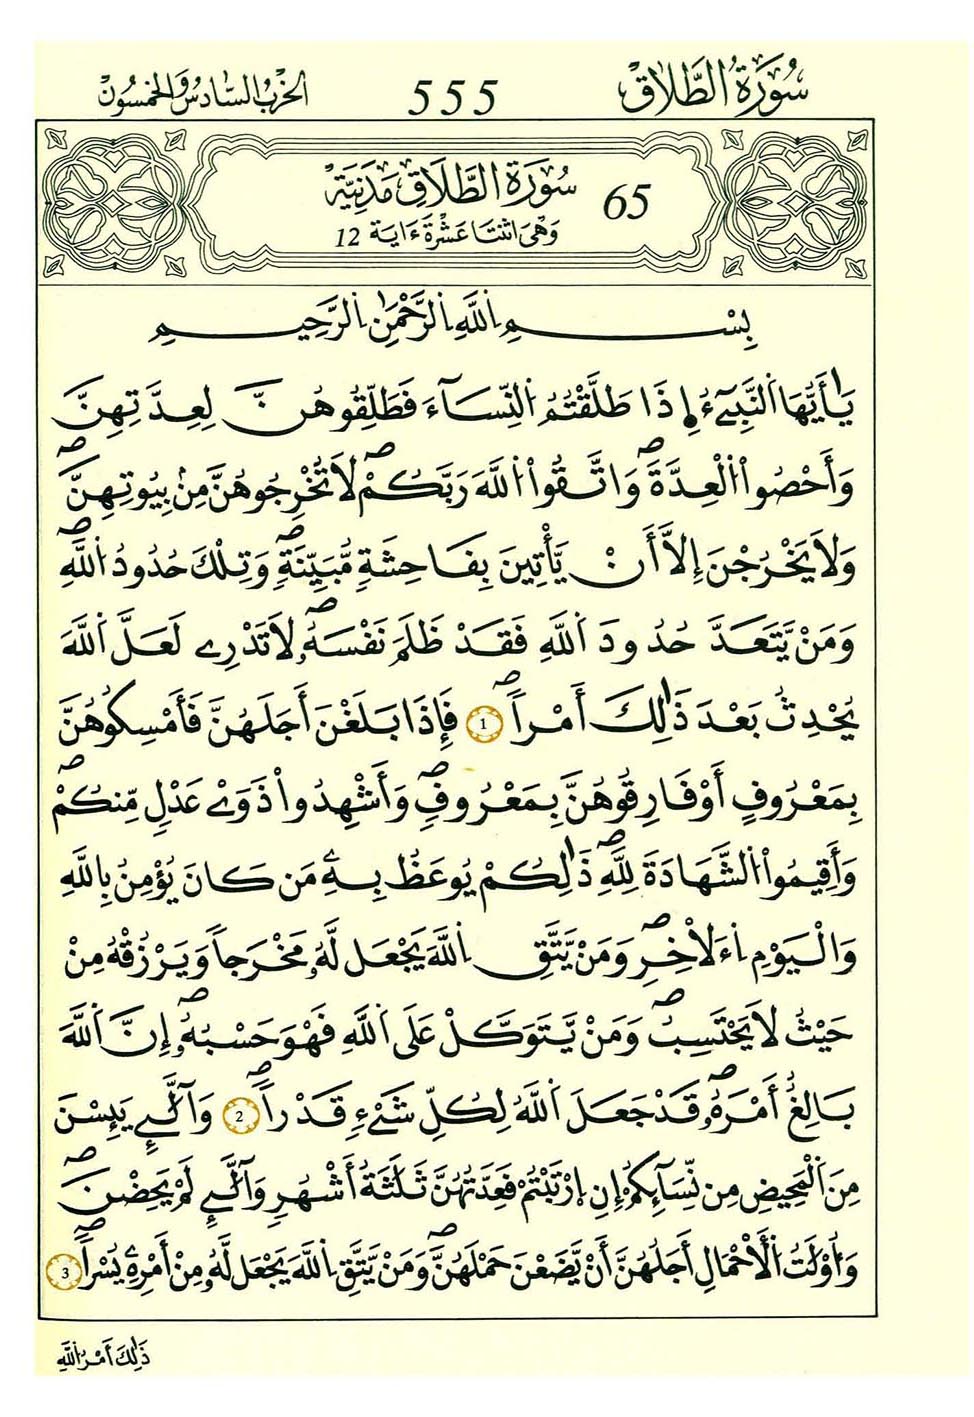 سُورَةُ الطَّلَاقِ 555 الحِزْبُ السَّادِسُ وَالخَمْسُونَ
65 سُورَةُ الطَّلَاقِ مَدَنِيَّة
وَهْيَ اثْنَتَا عَشْرَةَ ءَايَة 12
بِسْمِ اِللَّهِ اِلرَّحْمَٰنِ اِلرَّحِيمِ
يَٰأَيُّهَا اَلنَّبِيٓءُ اِ۪ذَا طَلَّقْتُمُ اُلنِّسَآءَ فَطَلِّقُوهُنَّ لِعِدَّتِهِنَّ
وَأَحْصُواْ اُلْعِدَّةَۖ وَاتَّقُواْ اُللَّهَ رَبَّكُمْۖ لَا تُخْرِجُوهُنَّ مِنۢ بِيُوتِهِنَّۖ
وَلَا يَخْرُجْنَ إِلَّا أَنْ يَّأْتِينَ بِفَاحِشَةٍ مُّبَيِّنَةٍۖ وَتِلْكَ حُدُودُ اُللَّهِۖ
وَمَنْ يَّتَعَدَّ حُدُودَ اَللَّهِ فَقَدْ ظَلَمَ نَفْسَهُۥۖ لَا تَدْرِے لَعَلَّ اَللَّهَ
يُحْدِثُ بَعْدَ ذَٰلِكَ أَمْراًۖ 1 فَإِذَا بَلَغْنَ أَجَلَهُنَّ فَأَمْسِكُوهُنَّ
بِمَعْرُوفٍ أَوْ فَارِقُوهُنَّ بِمَعْرُوفٍۖ وَأَشْهِدُواْ ذَوَےْ عَدْلٍ مِّنكُمْۖ
وَأَقِيمُواْ اُلشَّهَادَةَ لِلَّهِۖ ذَٰلِكُمْ يُوعَظُ بِهِۦ مَن كَانَ يُؤْمِنُ بِاللَّهِ
وَالْيَوْمِ اِءَلَاْخِرِۖ وَمَنْ يَّتَّقِ اِللَّهَ يَجْعَل لَّهُۥ مَخْرَجاً وَيَرْزُقْهُ مِنْ
حَيْثُ لَا يَحْتَسِبُۖ وَمَنْ يَّتَوَكَّلْ عَلَى اَللَّهِ فَهْوَ حَسْبُهُۥۖ إِنَّ اَللَّهَ
بَٰلِغٌ أَمْرَهُۥۖ قَدْ جَعَلَ اَللَّهُ لِكُلِّ شَےْءٍ قَدْراًۖ 2 وَالَّٰٓـِٕے يَئِسْنَ
مِنَ اَلْمَحِيضِ مِن نِّسَآئِكُمُۥٓ إِنِ اِرْتَبْتُمْ فَعِدَّتُهُنَّ ثَلَٰثَةُ أَشْهُرٍ وَالَّٰٓـِٕے لَمْ يَحِضْنَۖ
وَأُوْلَٰتُ اُلَاحْمَالِ أَجَلُهُنَّ أَنْ يَّضَعْنَ حَمْلَهُنَّۖ وَمَنْ يَّتَّقِ اِللَّهَ يَجْعَل لَّهُۥ مِنْ أَمْرِهِۦ يُسْراًۖ 3
ذَٰلِكَ أَمْرُ اُللَّهِ